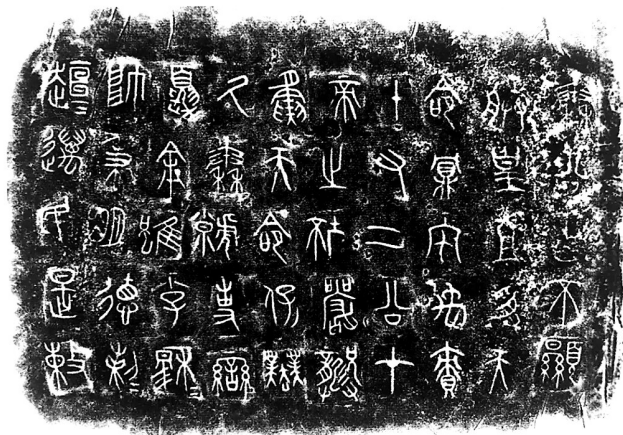 秦公曰不顯
朕皇且受天
命鼏宅禹責
十又二公才
帝之坏嚴龏
夤天命保業
氒秦虩事蠻
夏余雖小子穆=
帥秉明德剌=
趄=邁民是敕